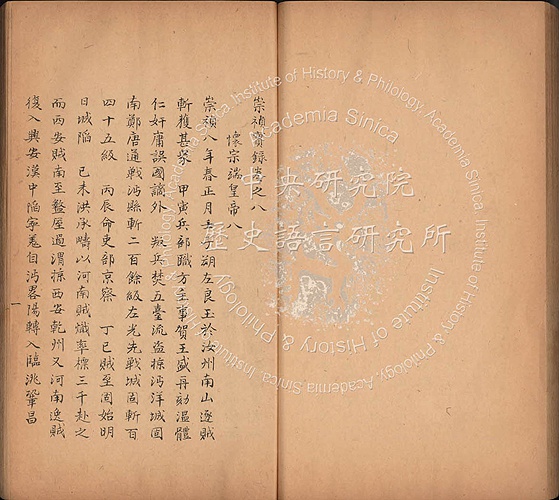 崇禎實錄卷之八
懷宗端皇帝八
崇禎八年春正月壬子朔左良玉於汝州南山逐賊
斬獲甚眾　甲寅兵部職方主事賀王盛再劾溫體
仁奸庸誤國謫外　叛兵焚五臺流盜掠沔洋城固
南鄭唐通戰沔縣斬二百餘級左光先戰城固斬百
四十五級　丙辰命吏部京察　丁巳賊至固始明
日城陷　己未洪承疇以河南賊熾率標三千赴之
而西安賊南至盩厔過渭掠西安乾州又河南逸賊
復入興安漢中陷寧羌自沔畧陽轉入臨洮鞏昌
一
中央研究院
歷史語言研究所
Institute of History & Philology, Academia Sinica